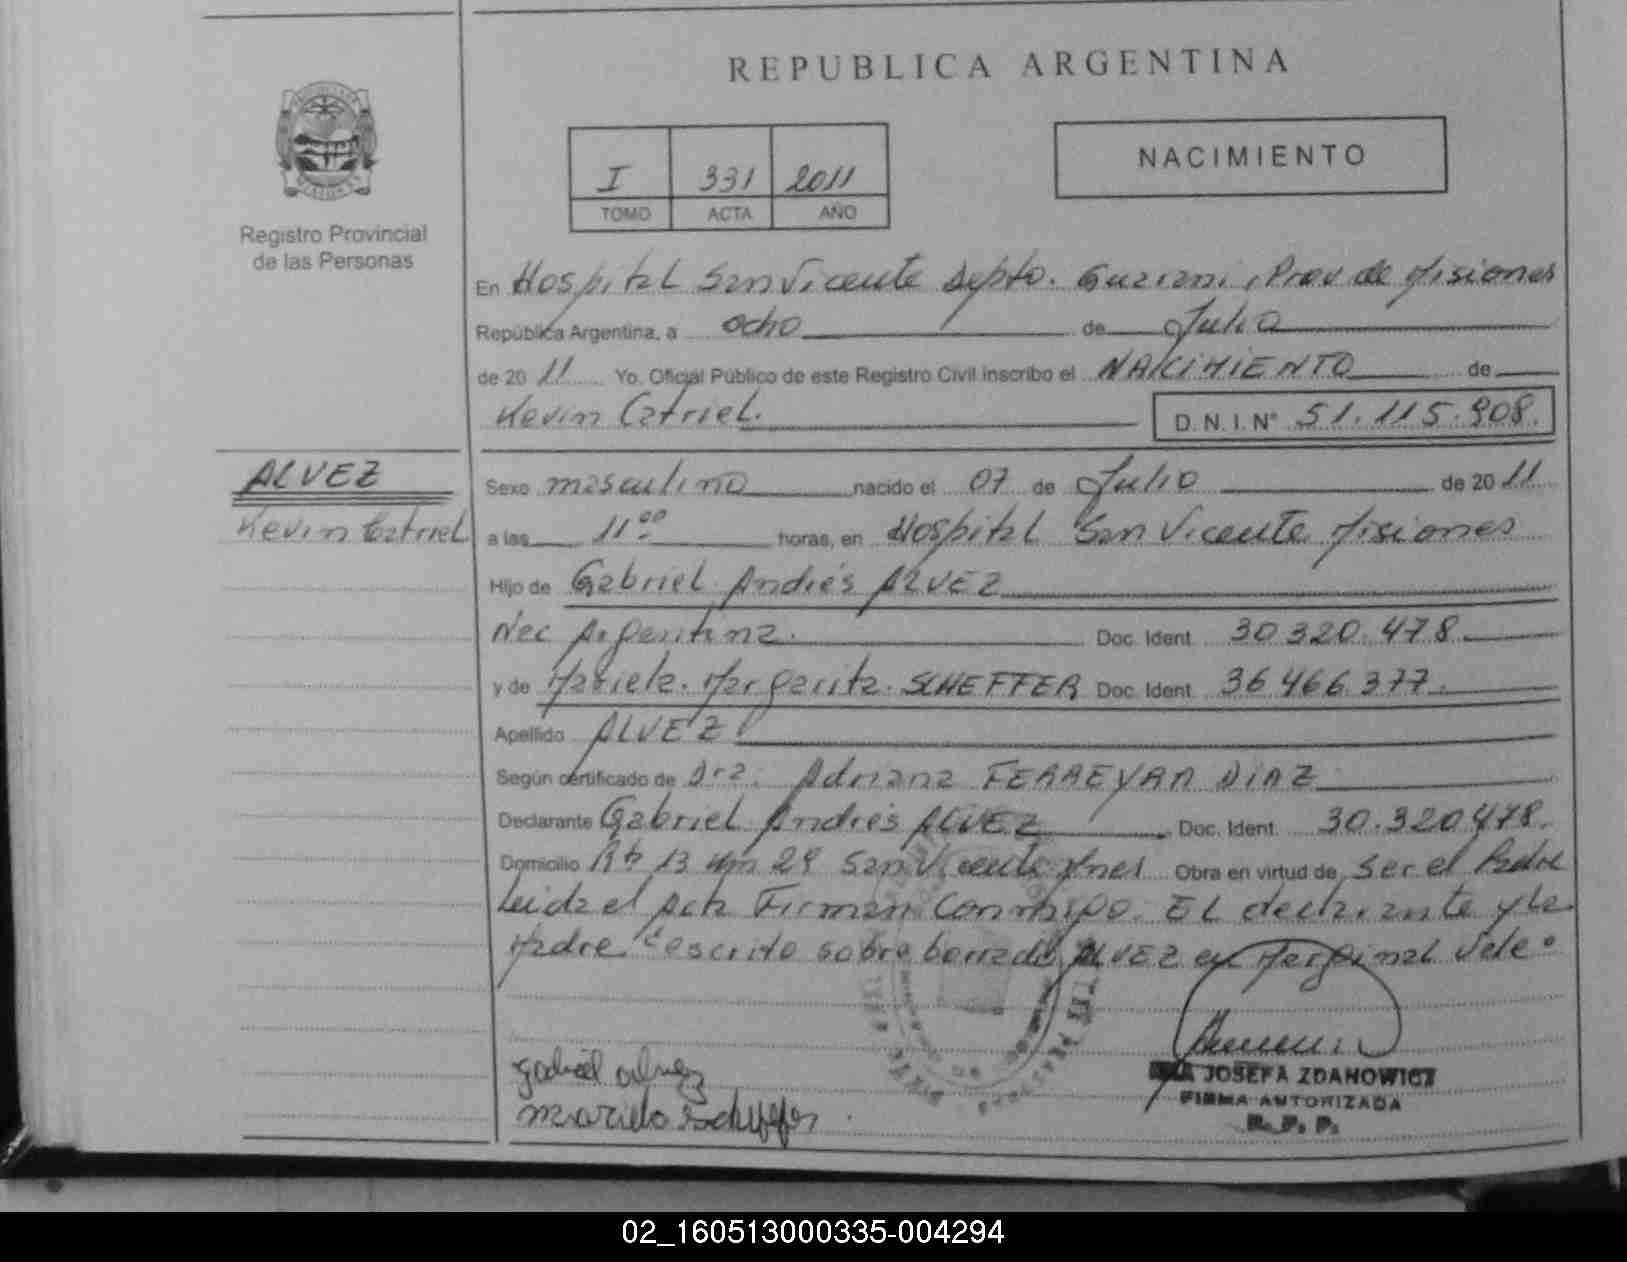 REPUBLICA ARGENTINA
I 331 2011
TOMO ACTA AÑO
NACIMIENTO
Registro Provincial
de las Personas
En Hospital San Vicente Depto. Guarani, Prov de Misiones
República Argentina, a ocho de Julio
de 20 11 Yo. Oficial Público de este Registro Civil inscribo el NACIMIENTO de
Kevin Catriel. D.N.I. N° 51.115.908.
ALVEZ
Kevin Catriel
Sexo masculino nacido el 07 de Julio de 20 11
a las 11 00 horas, en Hospital San Vicente Misiones
Hijo de Gabriel Andrés ALVEZ
Nac Argentina. Doc. Ident. 30 320. 478
y de Mariela. Margarita. SCHEFFER Doc. Ident. 36 466 377.
Apellido ALVEZ
Según certificado de Dra. Adriana FERREYRA DIAZ
Declarante Gabriel Andrés ALVEZ Doc. Ident. 30.320478.
Domicilio Rta 13 Km 29 San Vicente Mnes Obra en virtud de ser el Padre
Leida el Acta Firman Conmigo. El declarante y la
Madre. escrito sobre borrado ALVEZ en Marginal Vale
gabriel alvez
mariela Scheffer
JOSEFA ZDANOWICZ
FIRMA AUTORIZADA
R. P. P.
02_160513000335-004294